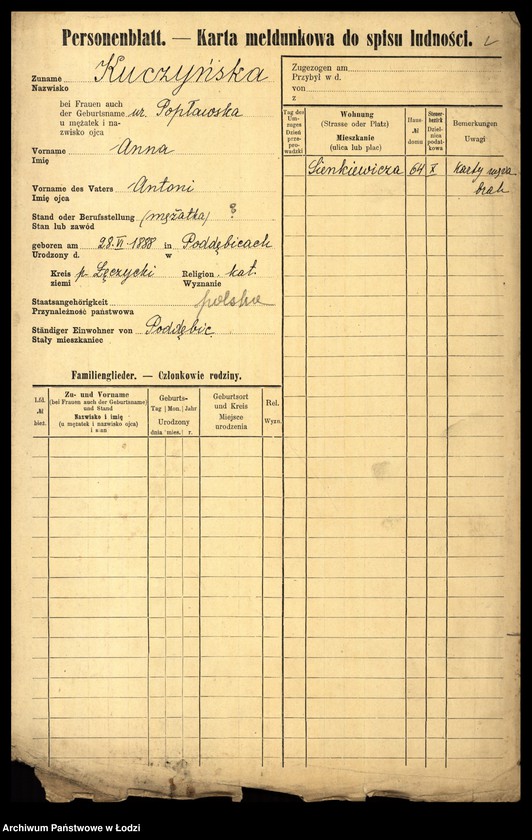 Personenblatt. — Karta meldunkowa do spisu ludności.
Zuname Kuczyńska
Nazwisko
bei Frauen auch
der Geburtsname ur. Popławska
u mężatek i na-
zwisko ojca
Vorname Anna
Imię
Vorname des Vaters Antoni
Imię ojca
Stand oder Berufsstellung (mężatka) ?
Stan lub zawód
geboren am 28.VI.1888 in Poddębicach
Urodzony d. w
Kreis p. Łęczycki Religion kat.
ziemi Wyznanie
Staatsangehörigkeit polska
Przynależność państwowa
Ständiger Einwohner von Poddębic
Stały mieszkaniec
Familienglieder. — Członkowie rodziny.
Lfd.
№
bież.
Zu- und Vorname
(bei Frauen auch der Geburtsname)
und Stand
Nazwisko i imię
(u mężatek i nazwisko ojca)
i stan
Geburts-
Tag | Mon. | Jahr
Urodzony
dnia | mies. | r.
Geburtsort
und Kreis
Miejsce
urodzenia
Rel.
Wyzn.
Zugezogen am
Przybył w d.
von
z
Tag des
Um-
zuges
Dzień
prze-
pro-
wadzki
Wohnung
(Strasse oder Platz)
Mieszkanie
(ulica lub plac)
Haus-
№
domu
Steuer-
bezirk
Dziel-
nica
podat-
kowa
Bemerkungen
Uwagi
Sienkiewicza 64 X Karty męża
brak
Archiwum Państwowe w Łodzi